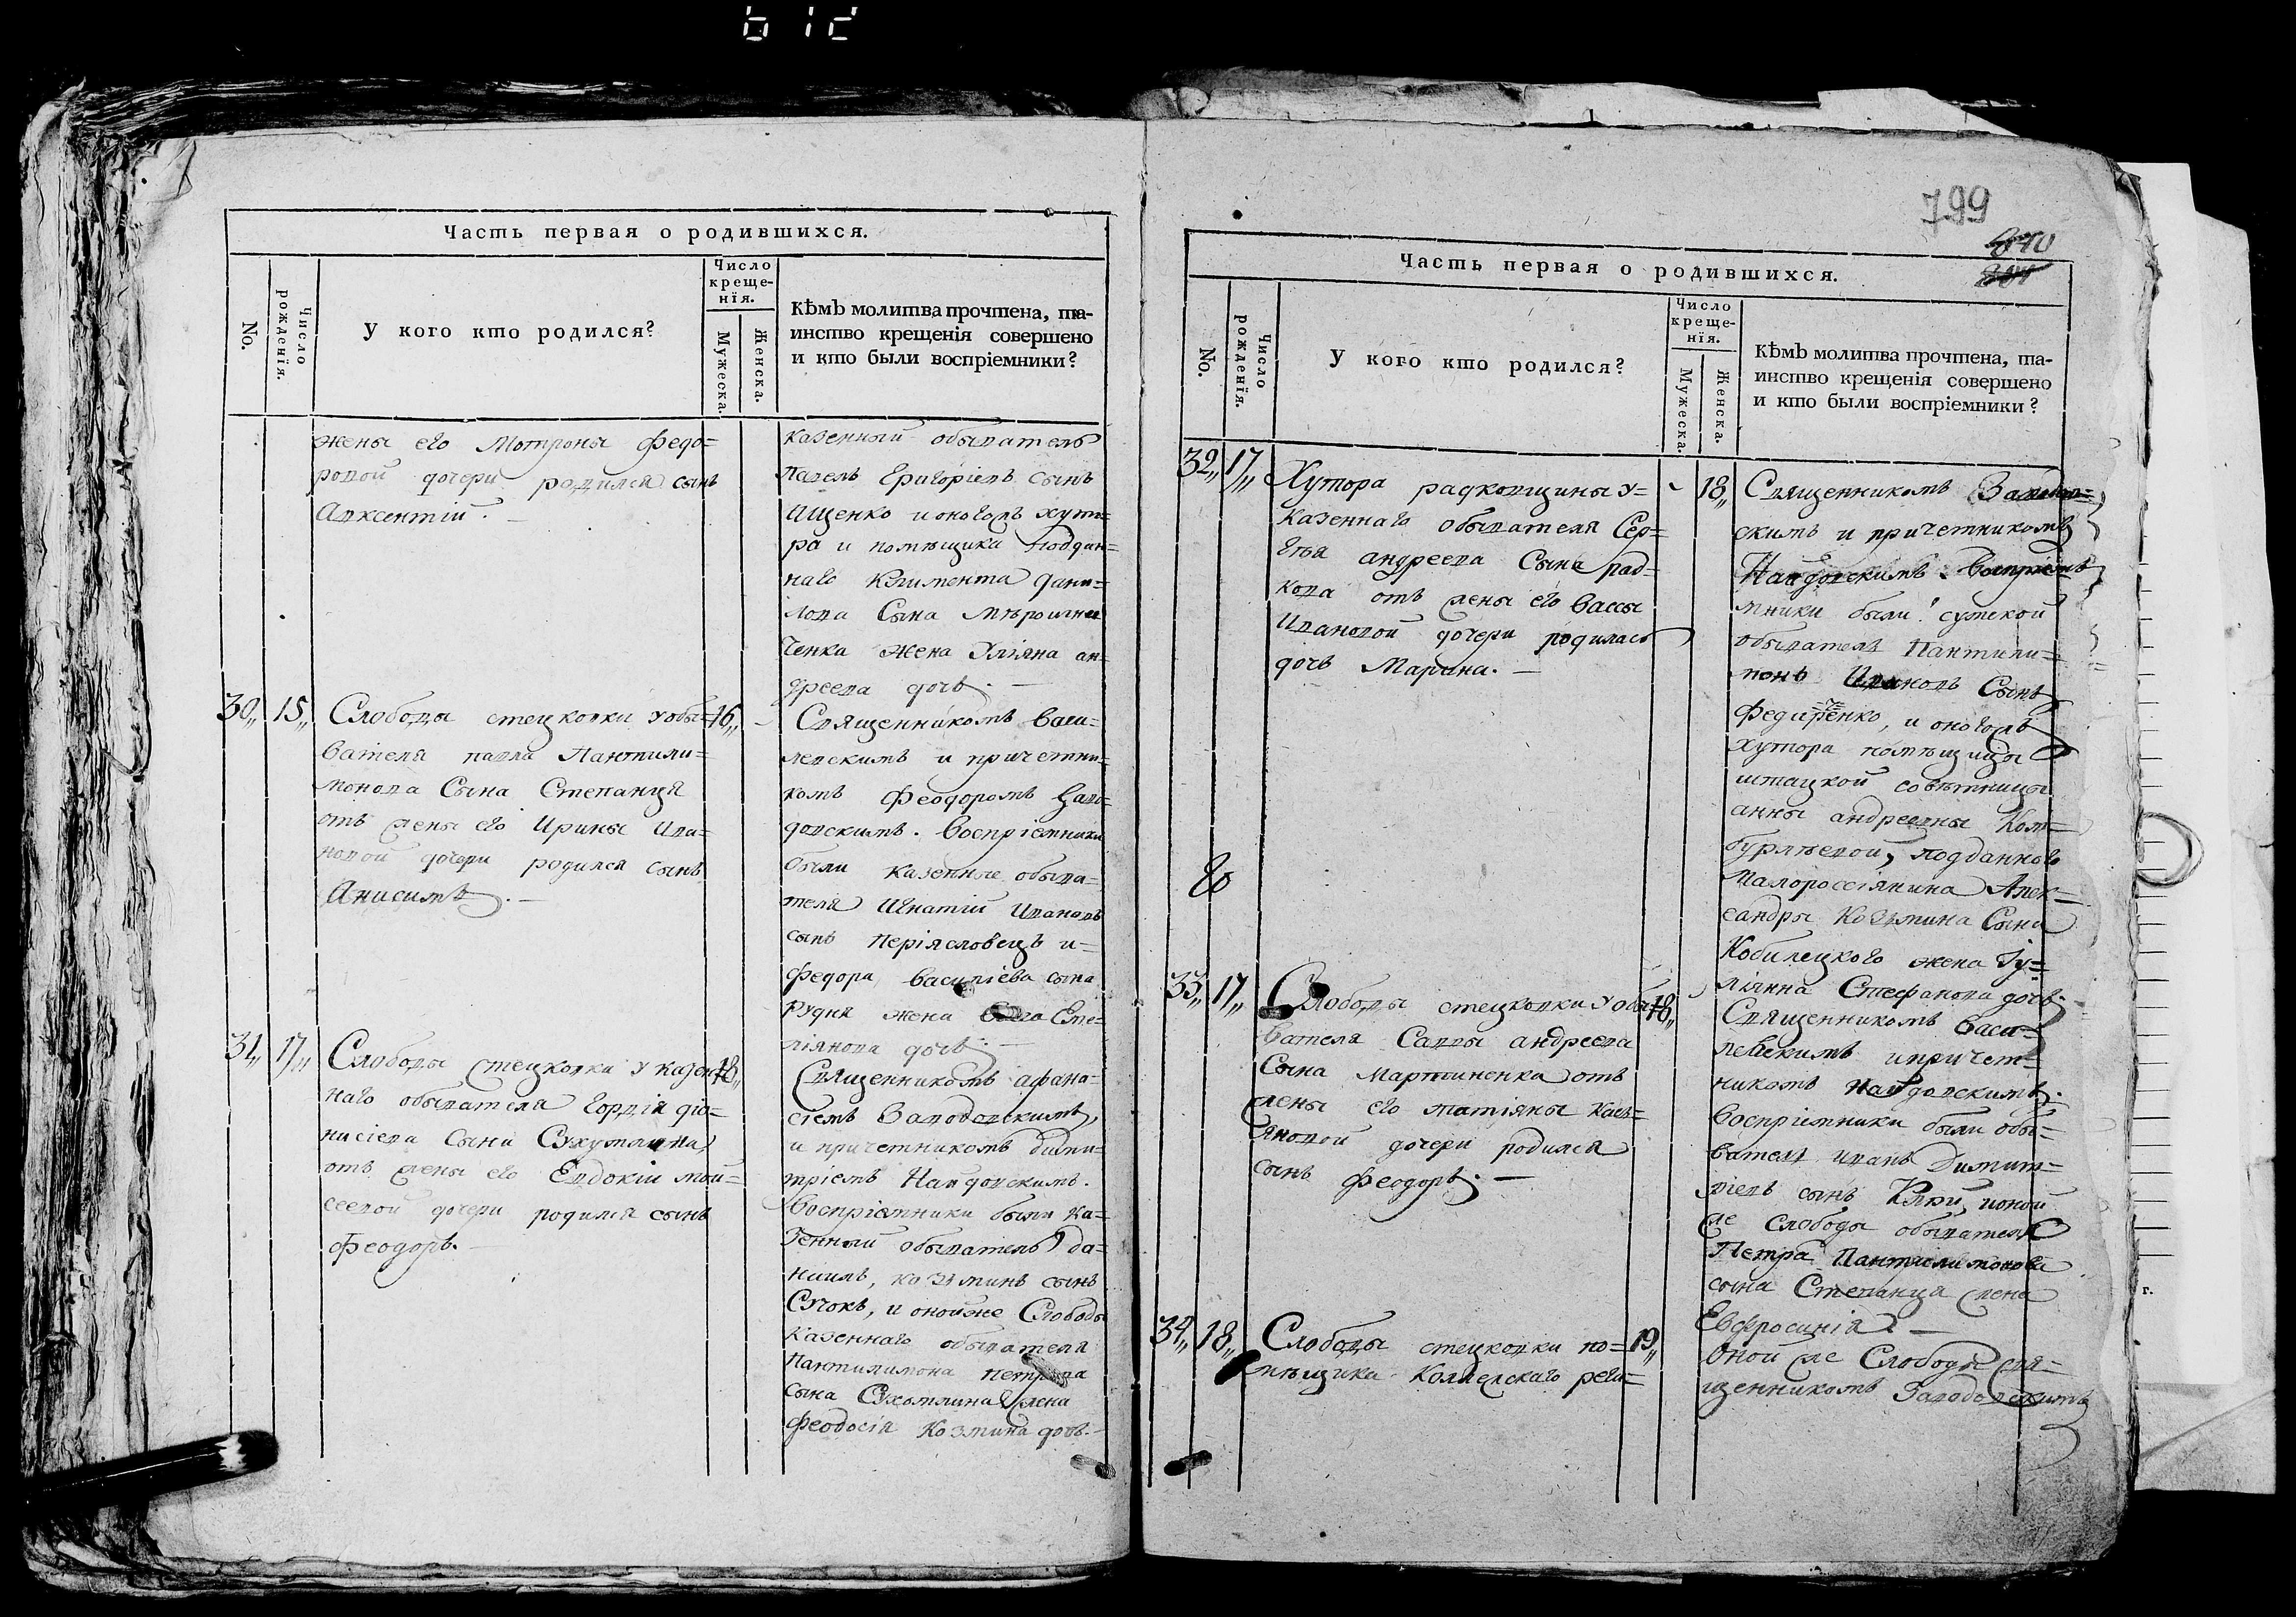 Часть первая о родившихся.
No.
Число рожденїя.
У кого кто родился?
Число креще-нїя.
Мужеска.
Женска.
КѢмЪ молитва прочтена, та-
инство крещенія совершено
и кто были воспріемники?
жены его Мотроны Федо=
ровой дочери родился сынъ
Авксентій.
казенный обыватель
Павелъ Григоріевъ сынъ
Ищенко и оногожъ хуто=
ра и помѣщика поддан=
наго Климента дани=
лова Сына
ченка жена Уліяна ан=
дреева дочь.
30,, 15,,
Слободы стецковки у обы=
вателя павла Пантили=
монова Сына Степанця
отъ жены его Ирины Ива=
новой дочери родился сынъ
Анисимъ.
16,,
Священникомъ Васи=
левскимъ и причетни=
комъ Феодоромъ
Воспріемники
были казенные обыва=
теля Игнатій Ивановъ
сынъ Періясловецъ и=
Федора Василіева сына
Рудня жена Еме=
ліянова дочь.
31,, 17,,
Слободы стецковки у казен=
наго обывателя Гордія діо=
нисіева Сына Сухумлина,
отъ жены его Евдокіи мои=
сеевой дочери родился сынъ
Феодоръ.
18,,
Священникомъ афана=
сіемъ
и причетникомъ дими=
тріемъ
Воспріемники были ка=
зенный обыватель да=
ніилъ, козьминъ сынъ
Сучокъ, и онойже Слободы
казеннаго обывателя
Пантилимона Петрова
сына Сухомлина жена
Феодосія Козмина дочь.
799
Часть первая о родившихся.
No.
Число рожденїя.
У кого кто родился?
Число креще-нїя.
Мужеска.
Женска.
КѢмЪ молитва прочтена, та-
инство крещенія совершено
и кто были воспріемники?
32,, 17,,
Хутора радковщины у=
казеннаго обывателя Сер=
гѣя андреева Сына рад=
кова отъ жены его Вассы
Ивановой дочери родилась
дочь Марина.
18,,
Священникомъ
скимъ и причетникомъ
Воспріе=
мники были: сумской
обыватель Пантили=
монъ Ивановъ Сынъ
Федиренко, и оногожъ
хутора помѣщицы
штацкой совѣтницы
анны андреевны Кон=
подданного
Малороссіянина Алек=
сандры Козьмина Сына
Кобилецкого жена Іу=
ліянна Стефанова дочь.
80
33,, 17,,
Слободы стецковки у обы=
вателя Саввы андреева
Сына Мартиненка отъ
жены его татіяны Кась=
яновой дочери родился
сынъ Феодоръ.
18,,
Священникомъ Васи=
левскимъ и причет=
никомъ
Воспріемники были обы=
ватель иванъ Димит=
ріевъ сынъ и оной
же Слободы обывателя
Петра Пантилимонова
сына Степанца жена
Евфросинія.
34,, 18,,
Слободы стецковки по=
мѣщика
19,,
Оной же Слободы свя=
щенникомъ